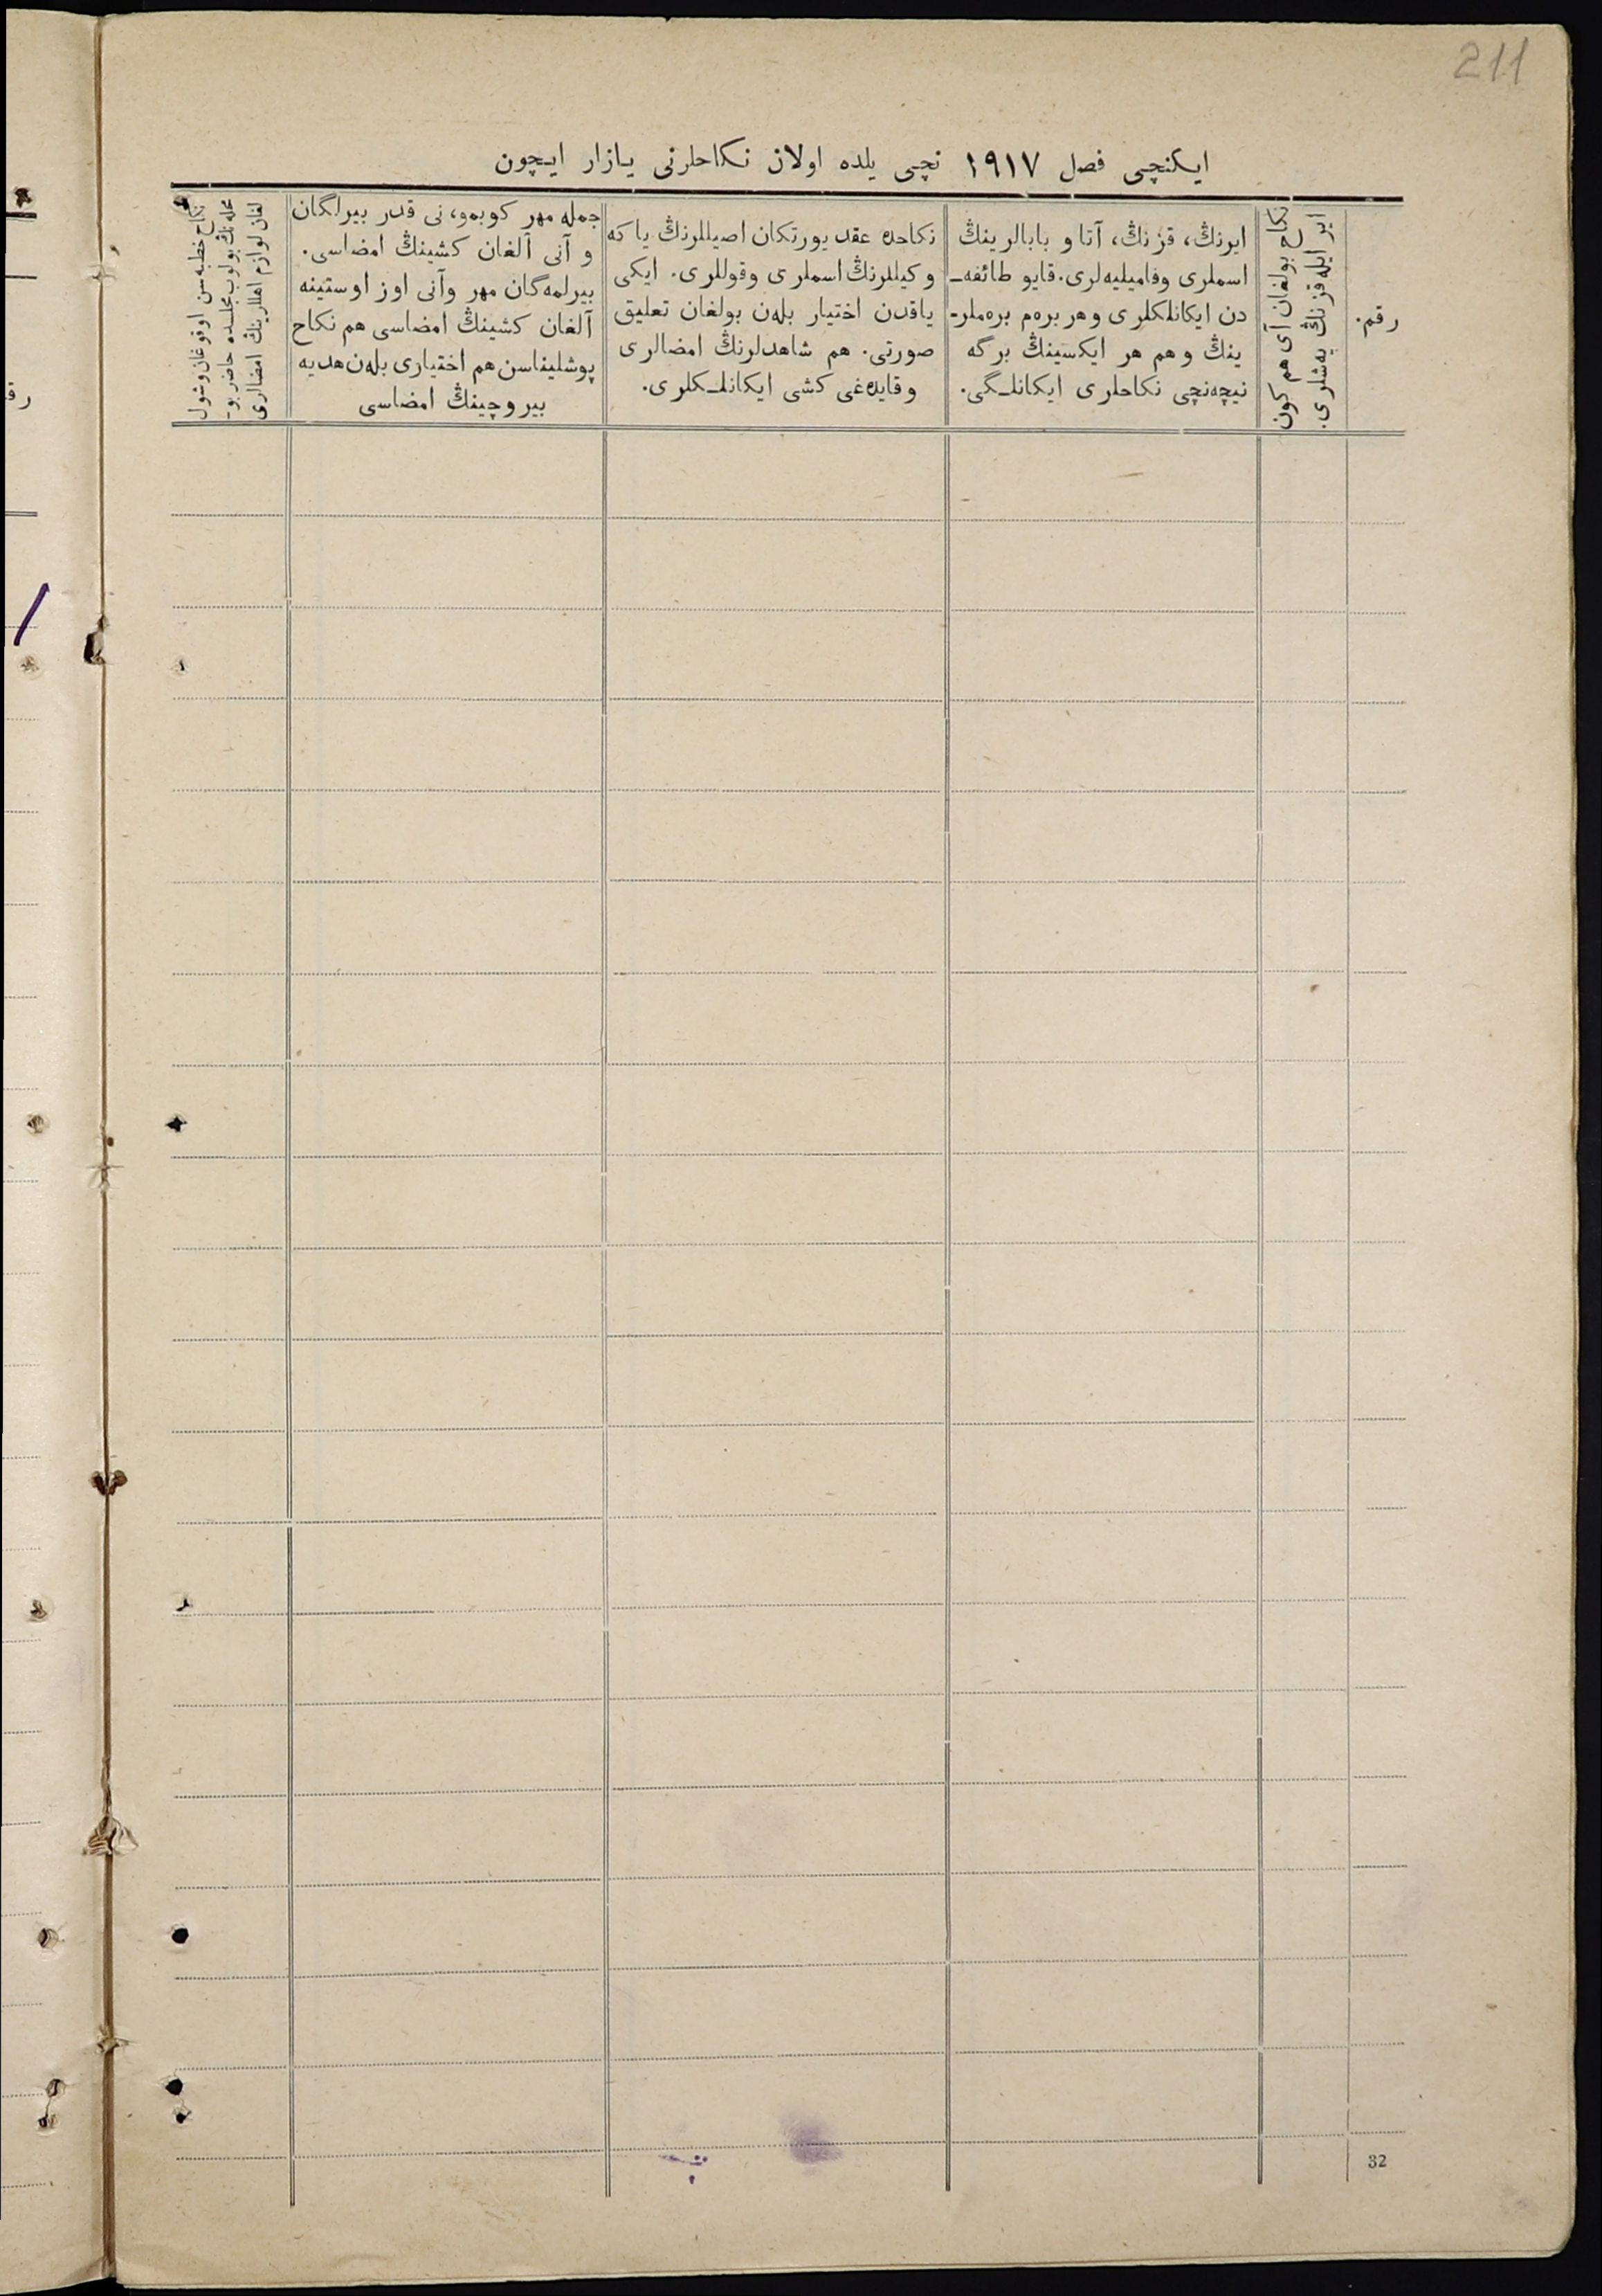 211
ایکنچی فصل ١٩١٧ نچی یلده اولان نکاحلرنی یازار ایچون
رقم.
نکاح بولغان آی هم کون
ایر ایله قزنڭ یەشلری.
ایرنڭ، قزنڭ، آتا و بابالرینڭ
اسملری وفامیلیەلری. قایو طائفەـ
دن ایکانلکلری وهر برەم برەملرـ
ینڭ وهم هر ایکسینڭ برگە
نیچەنچی نکاحلری ایکانلـگی.
نکاحدە عقد یورتکان اصیللرنڭ یا کە
وکیللرنڭ اسملری وقوللری. ایکی
یاقدن اختیار بلەن بولغان تعلیق
صورتی. هم شاهدلرنڭ امضالری
وقایدەغی کشی ایکانلـکلری.
جملە مهر کوبمو، نی قدر بیرلگان
و آنی آلغان کشینڭ امضاسی.
بیرلمەگان مهر وآنی اوز اوستینە
آلغان کشینڭ امضاسی هم نکاح
پوشلیناسن هم اختیاری بلەن هدیە
بیروچینڭ امضاسی
نکاح خطبەسن اوقوغان وشول
محلەنڭ بولوب مجلسدە حاضر بوـ
لغان لوازم اهللرینڭ امضالری
رق
32